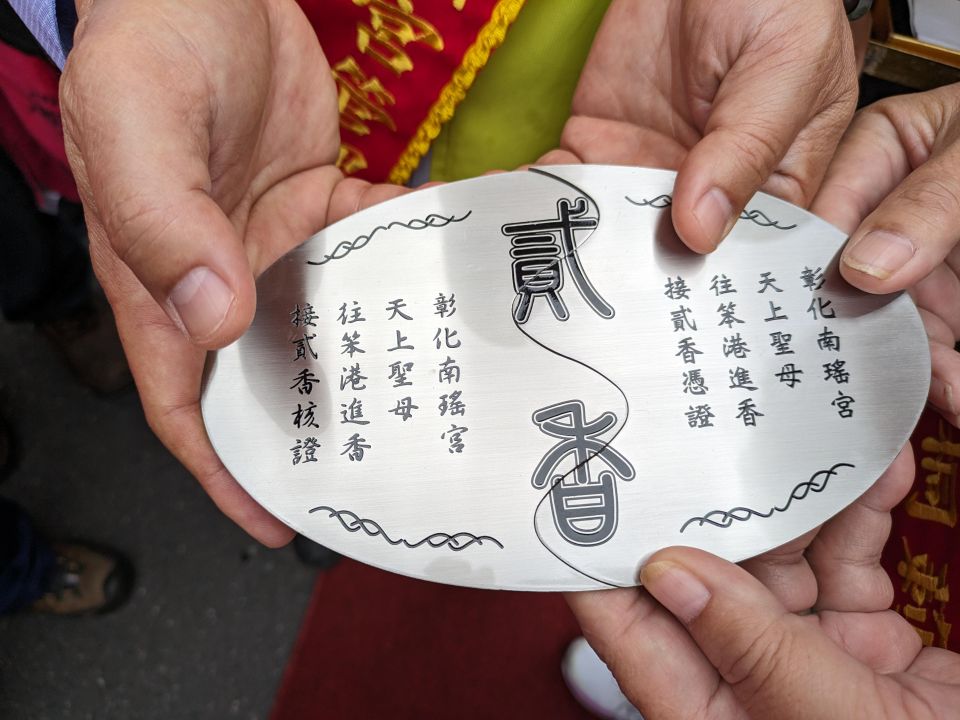 彰化南瑤宮
天上聖母
往笨港進香
接貳香憑證
貳香
彰化南瑤宮
天上聖母
往笨港進香
接貳香核證